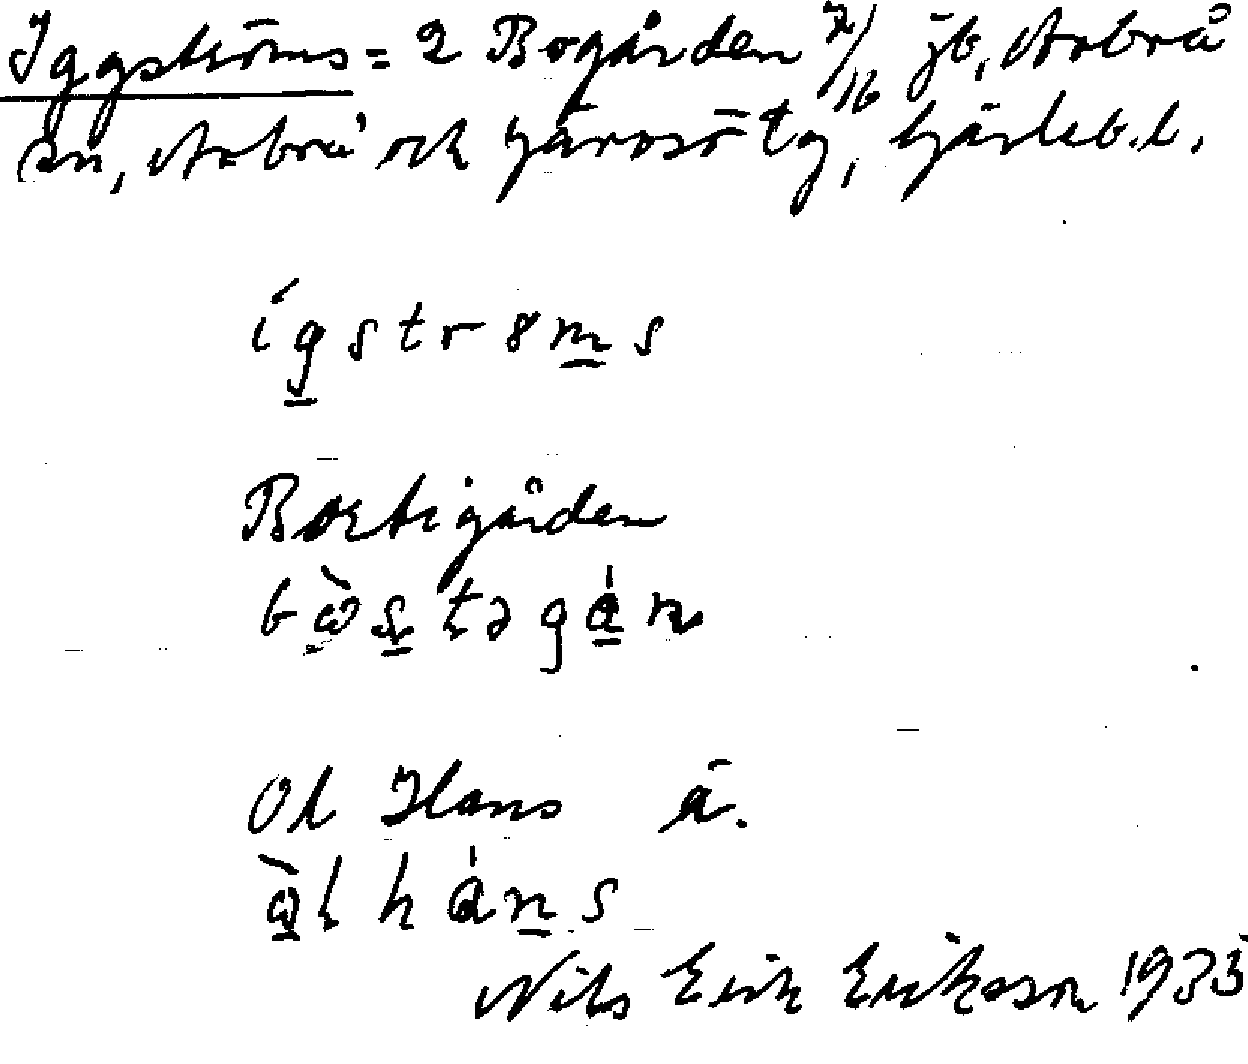 Iggströms = 2 Bogården 7/16 jb, Arbrå
sn, Arbrå och Järvsö tg, Gävleb. l.
igstrɞms
Bortigården
Ol Hans ä.
Nils Erik Eriksson 1933